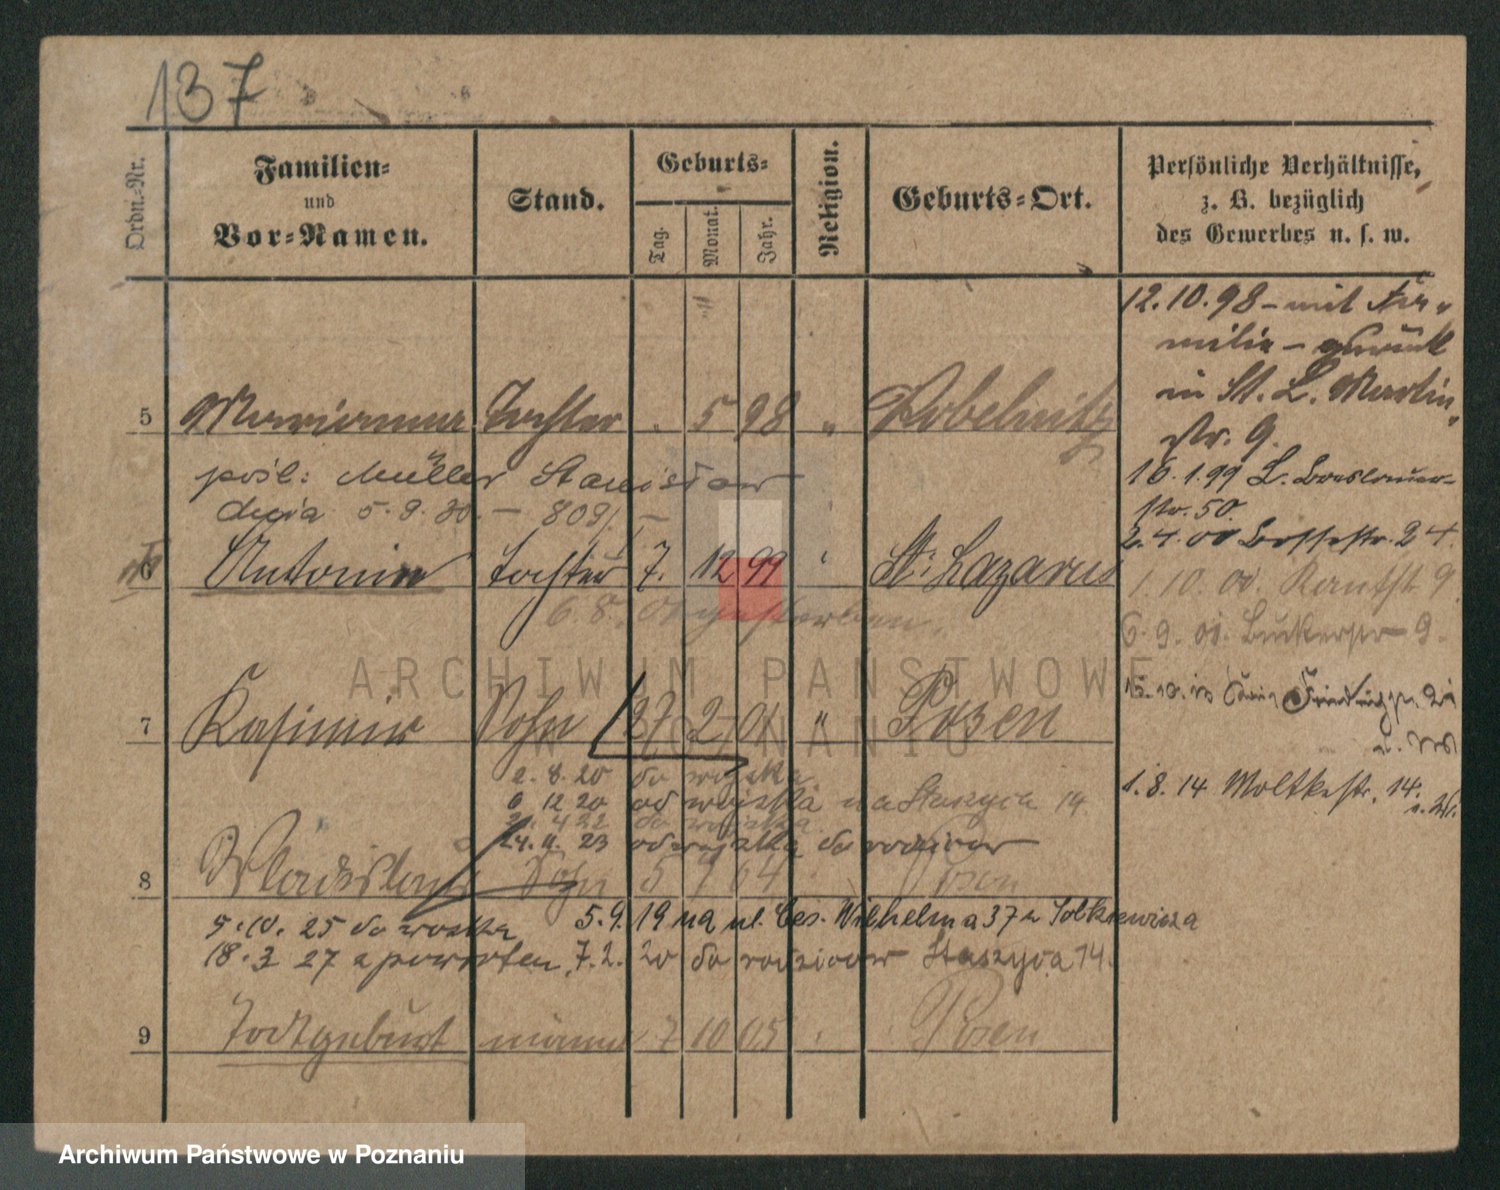 137
Ordn.-Nr.
Familien-
und
Vor-Namen.
Stand.
Geburts-
Tag.
Monat.
Jahr.
Religion.
Geburts-Ort.
Persönliche Verhältnisse,
z. B. bezüglich
des Gewerbes u. s. w.
12.10.98 - mit Fa-
milie - zurück
in St. L. Martin
str. 9.
5 Marianna Tochter . 5 98 "
pośl: Müller Stanisław
dnia 5.9.30. — 809/
16.1.99 L. Breslauer-
str. 50.
2.4.00 24.
6 Antonin Tochter 7. 12 99 " St. Lazarus
6.8. gestorben.
1.10.00. 9.
6.9. 01. Bukerstr 9.
7 Kasimir Sohn 27 2 01 " Posen
15.10.
2.8.20 do wojska
6 12 20 od wojska na Staszyca 14.
2. 4 22 do wojska
24.11.23 od wojska do rodziców
1.8.14 Moltkestr. 14.
8 Wladislaus Sohn 5 7 04 Posen
5.10.25 do wojska 5.9. 19 na ul. Ces. Wilhelma 37 Żółkiewicza
18.3 27 z powrotem 7.2. 20 do rodziców Staszyca 14.
9 Todtgeburt männl 7 10 05 Posen
ARCHIWUM PAŃSTWOWE
W POZNANIU
Archiwum Państwowe w Poznaniu